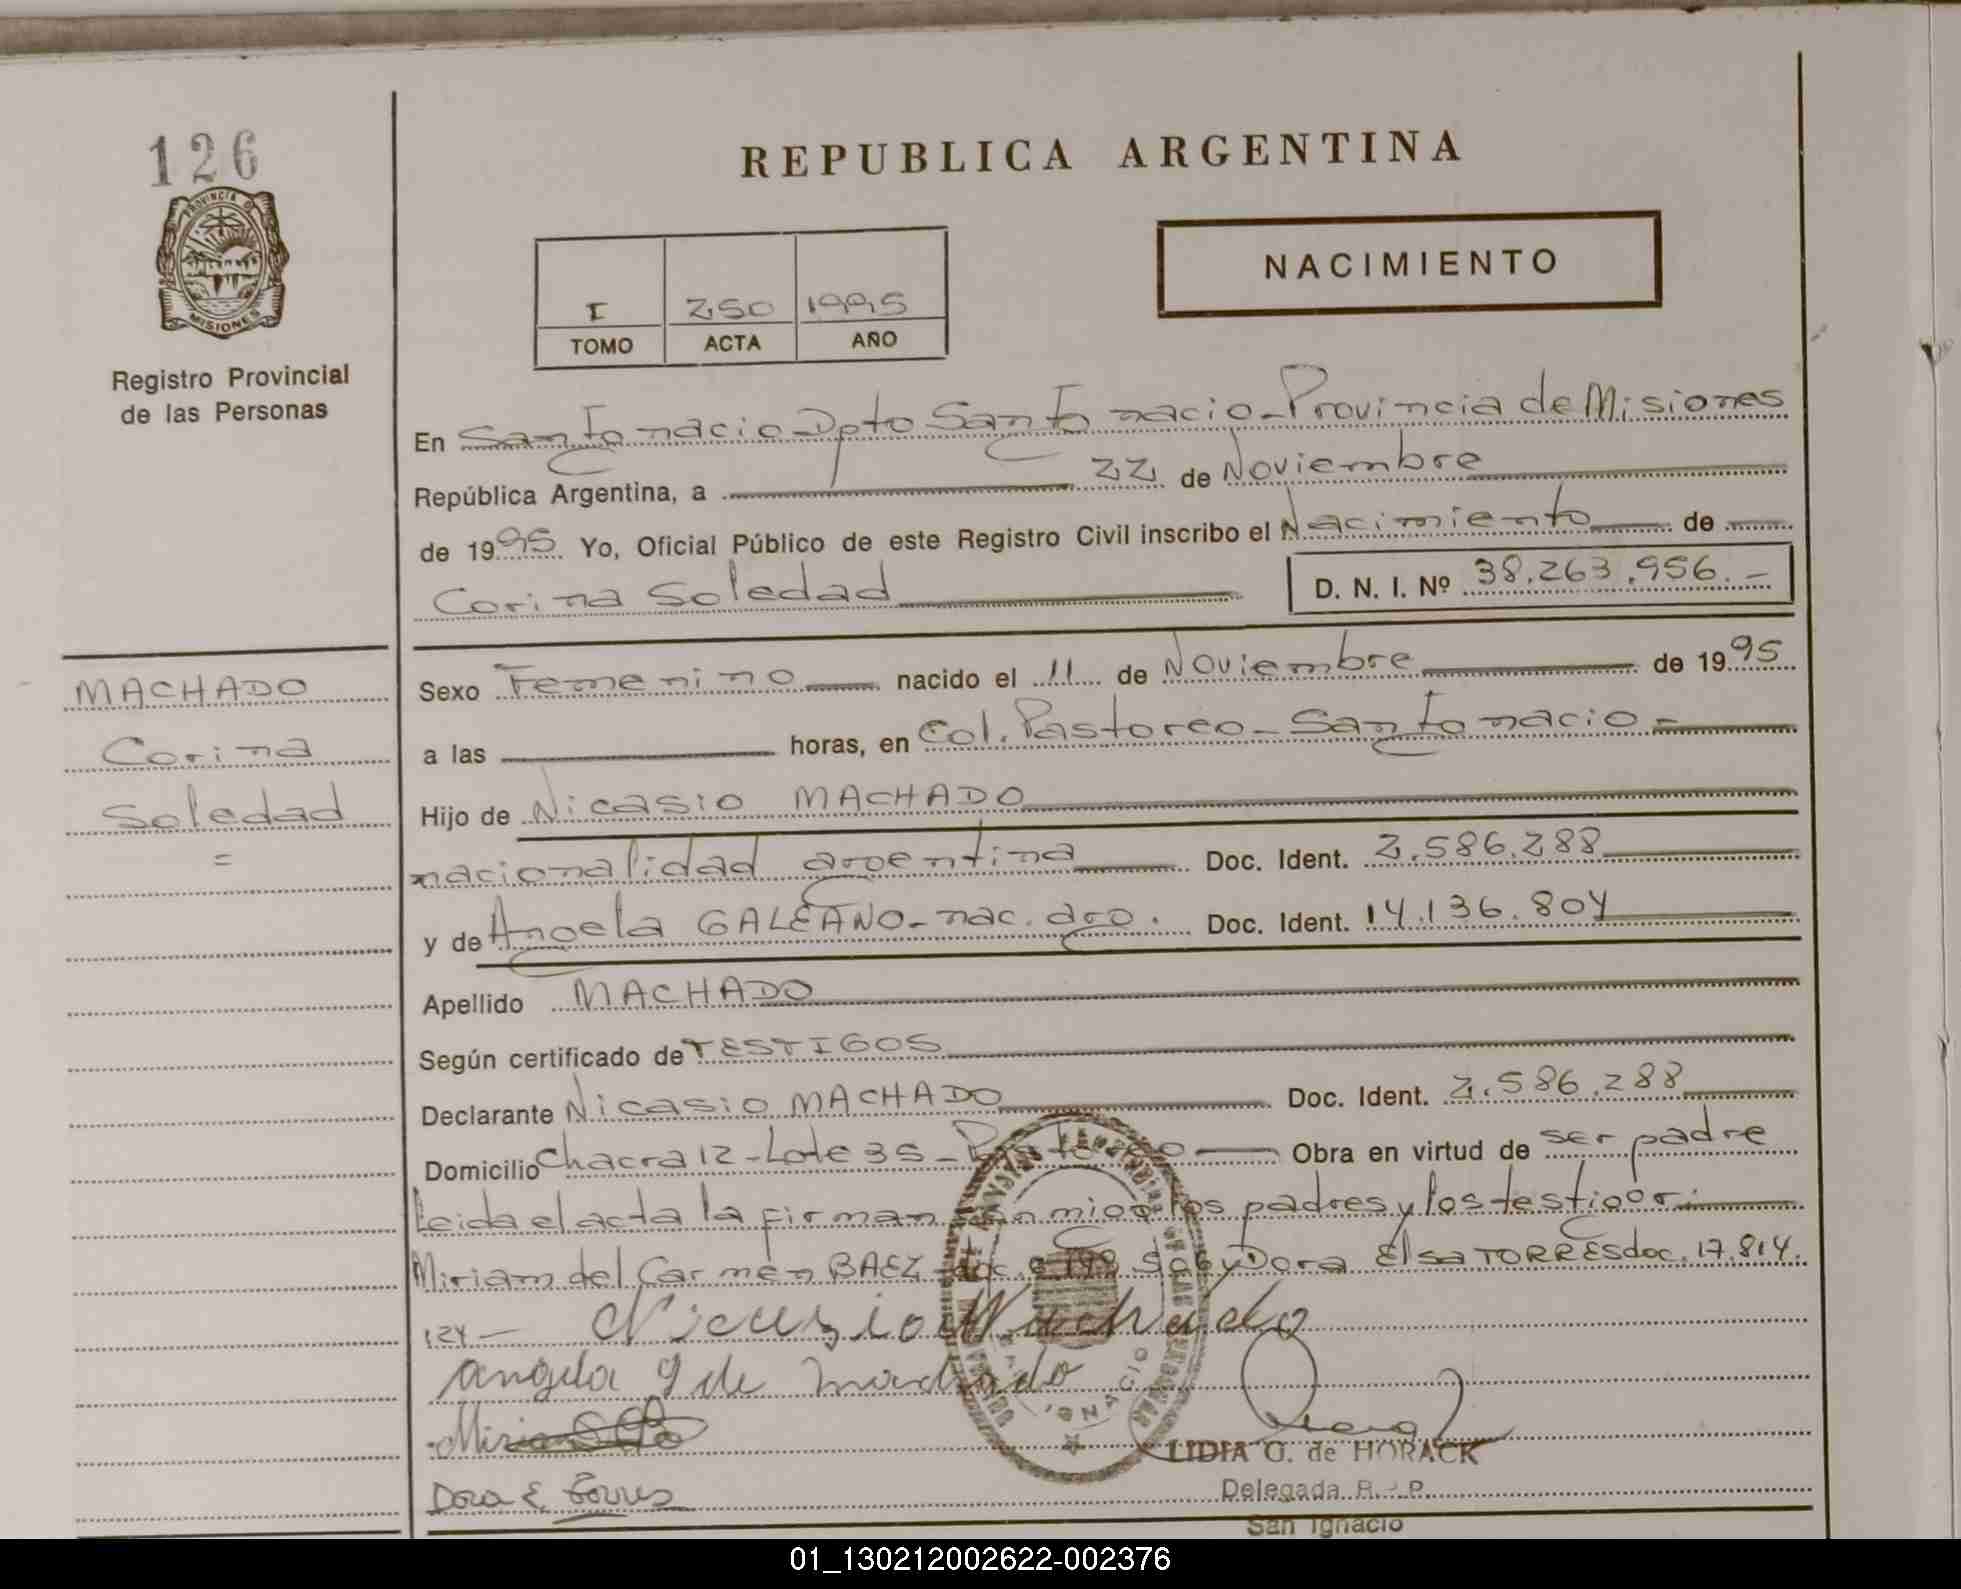 126
PROVINCIA D
MISIONES
Registro Provincial
de las Personas
MACHADO
Corina
Soledad
=
REPUBLICA ARGENTINA
NACIMIENTO
I 250 1995
TOMO ACTA AÑO
En San Ignacio Dpto San Ignacio - Provincia de Misiones
República Argentina, a 22 de Noviembre
de 1995 Yo, Oficial Público de este Registro Civil inscribo el Nacimiento de
Corina Soledad D. N. I. Nº 38.263.956.-
Sexo Femenino nacido el 11 de Noviembre de 1995
a las horas, en Col. Pastoreo - San Ignacio -
Hijo de Nicasio MACHADO
nacionalidad argentina Doc. Ident. 2.586.288
y de Angela GALEANO - nac. arg. Doc. Ident. 14.136.804
Apellido MACHADO
Según certificado de TESTIGOS
Declarante Nicasio MACHADO Doc. Ident. 2.586.288
Domicilio Chacra 12 - Lote 35 - Pastoreo Obra en virtud de ser padre
Leida el acta la firman conmigo los padres y los testigos:
Miriam del Carmen BAEZ doc. y Dora Elsa TORRES doc. 17.814.
124 - Nicasio Machado
Angela G de Machado
Dora E Torres
LIDIA O. de HORACK
Delegada R.P.P.
San Ignacio
01_130212002622-002376